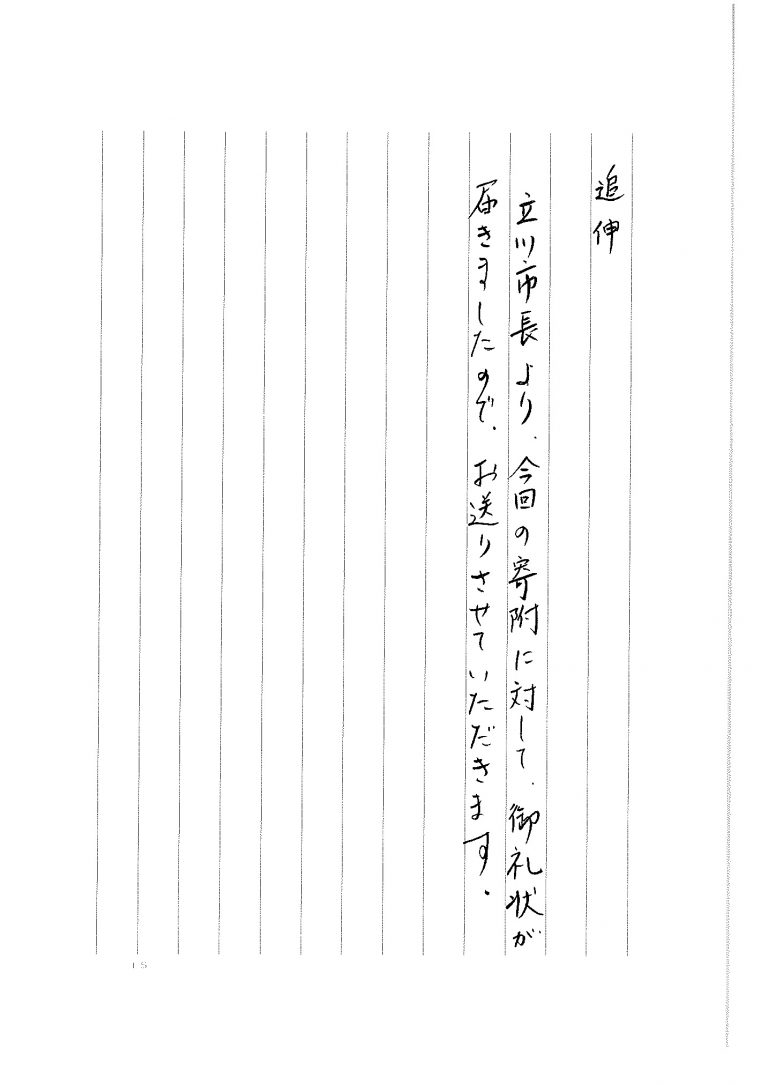 追伸
立川市長より、今回の寄附に対して、御礼状が
届きましたので、お送りさせていただきます。
15